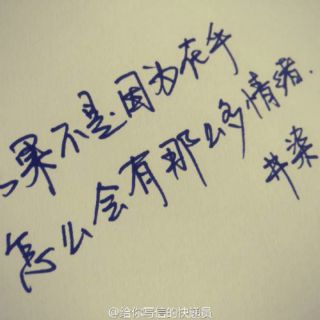 果不是因为在乎
怎么会有那么多情绪.
井柒
@给你写信的快递员